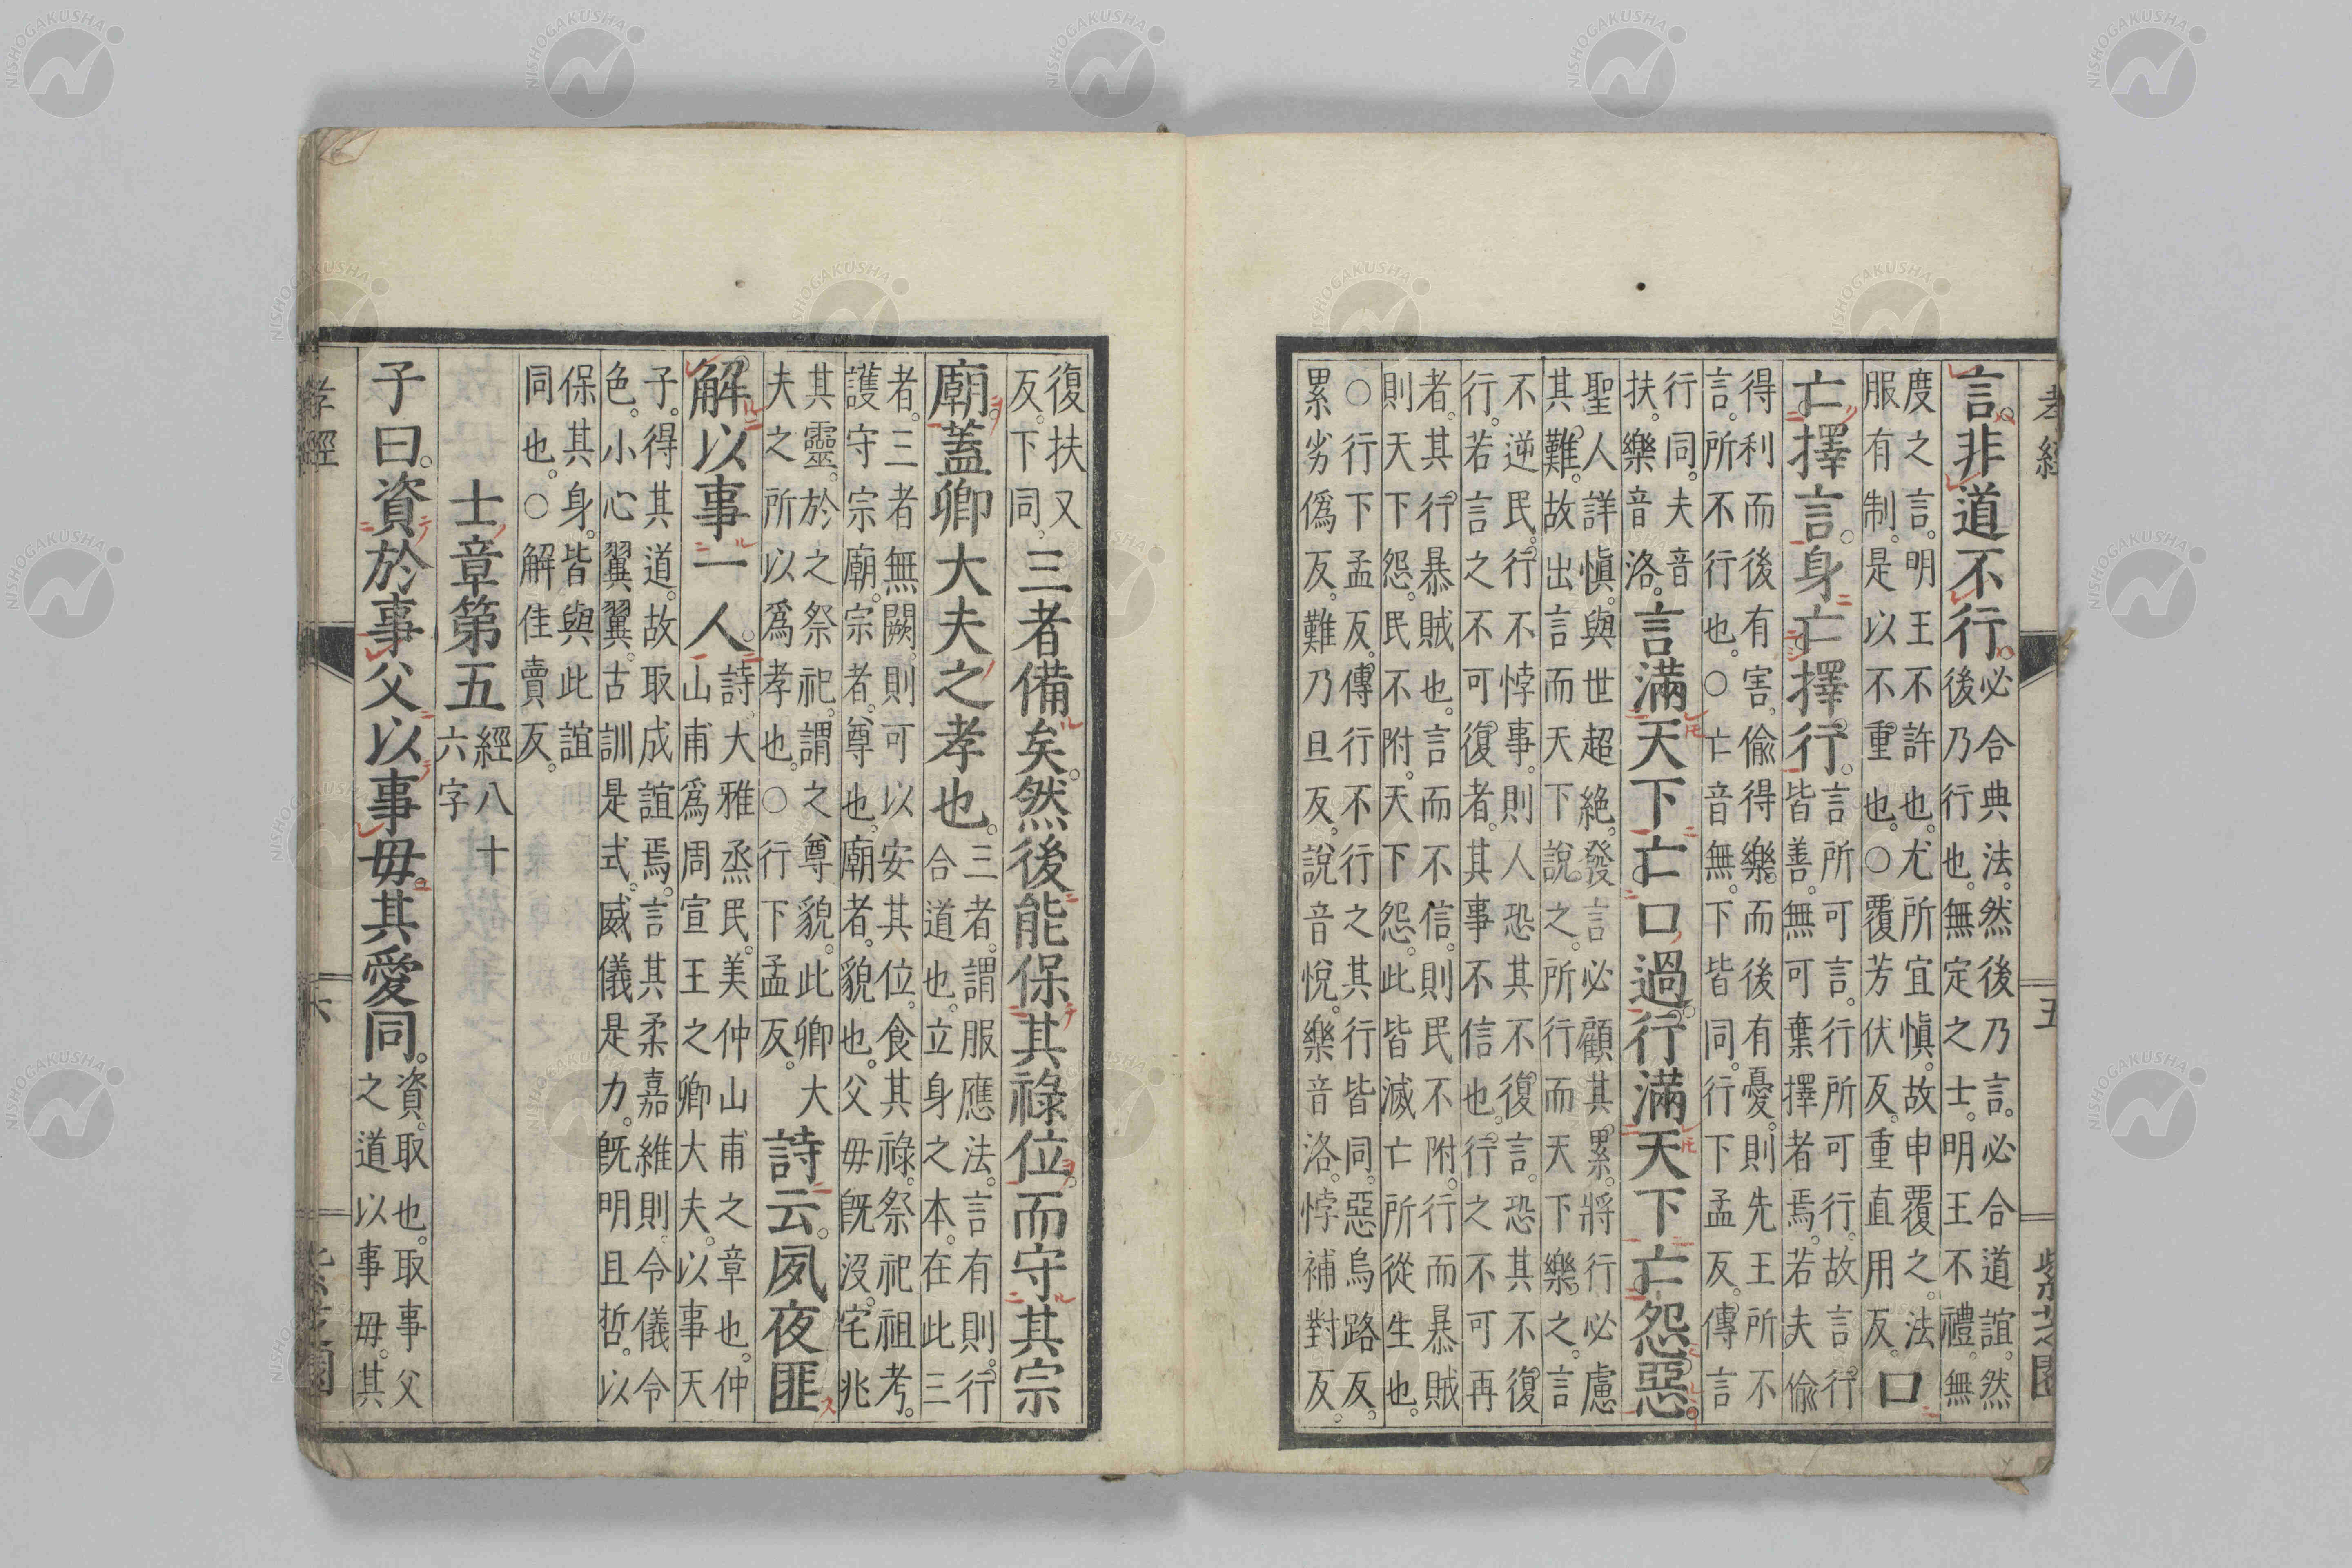 孝經
五
紫芝園
言。非道不行。必合典法。然後乃言。必合道誼。然
後乃行也。無定之士。明王不禮。無
度之言。明王不許也。尤所宜慎。故申覆之。法
服有制。是以不重也。○覆芳伏反。重直用反。口
亡擇言。身亡擇行。言所可言。行所可行。故言行
皆善。無可棄擇者焉。若夫偷
得利而後有害。偷得樂。而後有憂。則先王所不
言。所不行也。○亡音無。下皆同。行下孟反。傳言
行同。夫音
扶。樂音洛。言滿天下亡口過。行滿天下亡怨惡。
聖人詳慎。與世超絶。發言必顧其累。將行必慮
其難。故出言而天下說之。所行而天下樂之。言
不逆民。行不悖事。則人恐其不復言。恐其不復
行。若言之不可復者。其事不信也。行之不可再
者。其行暴賊也。言而不信。則民不附。行而暴賊
則天下怨。民不附。天下怨。此皆滅亡所從生也。
○行下孟反。傳行不行之其行皆同。惡烏路反。
累劣僞反。難乃旦反。說音悅。樂音洛。悖補對反。
復扶又
反。下同。三者備矣。然後能保其祿位。而守其宗
廟。蓋卿大夫之孝也。三者。謂服應法。言有則。行
合道也。立身之本。在此三
者。三者無闕。則可以安其位。食其祿。祭祀祖考。
護守宗廟。宗者。尊也。廟者。貌也。父毋既沒。宅兆
其靈。於之祭祀。謂之尊貌。此卿大
夫之所以爲孝也。○行下孟反。詩云。夙夜匪
解以事一人。詩。大雅烝民。美仲山甫之章也。仲
山甫爲周宣王之卿大夫。以事天
子。得其道。故取成誼焉。言其柔嘉維則。令儀令
色。小心翼翼。古訓是式。威儀是力。既明且哲。以
保其身。皆與此誼
同也。○解佳賣反。
士章第五 經八十
六字
子曰。資於事父以事毋。其愛同。資。取也。取事父
之道以事毋。其
孝經
六
紫芝園
NISHOGAKUSHA